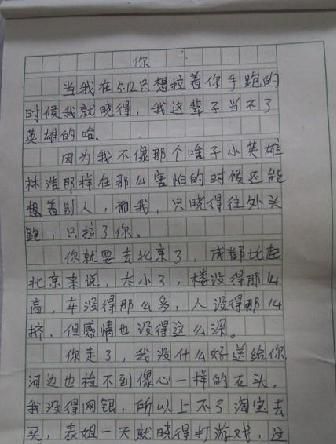 你
当我在512只想拉着你手跑的
时候我就晓得，我这辈子当不了
英雄的哈.
因为我不像那个啥子小英雄
林浩那样在那么害怕的时候还能
想着别人，而我，只晓得往外头
跑，只拉了你。
你就要去北京了，成都比起
北京来说，太小了，楼没得那么
高，车没得那么多，人没得那么
挤，但感情也没得这么深。
你走了，我没什么好送给你
河边也捡不到像心一样的石头.
我没得网银，所以上不了淘宝去
买，表姐一天就晓得打游戏，这